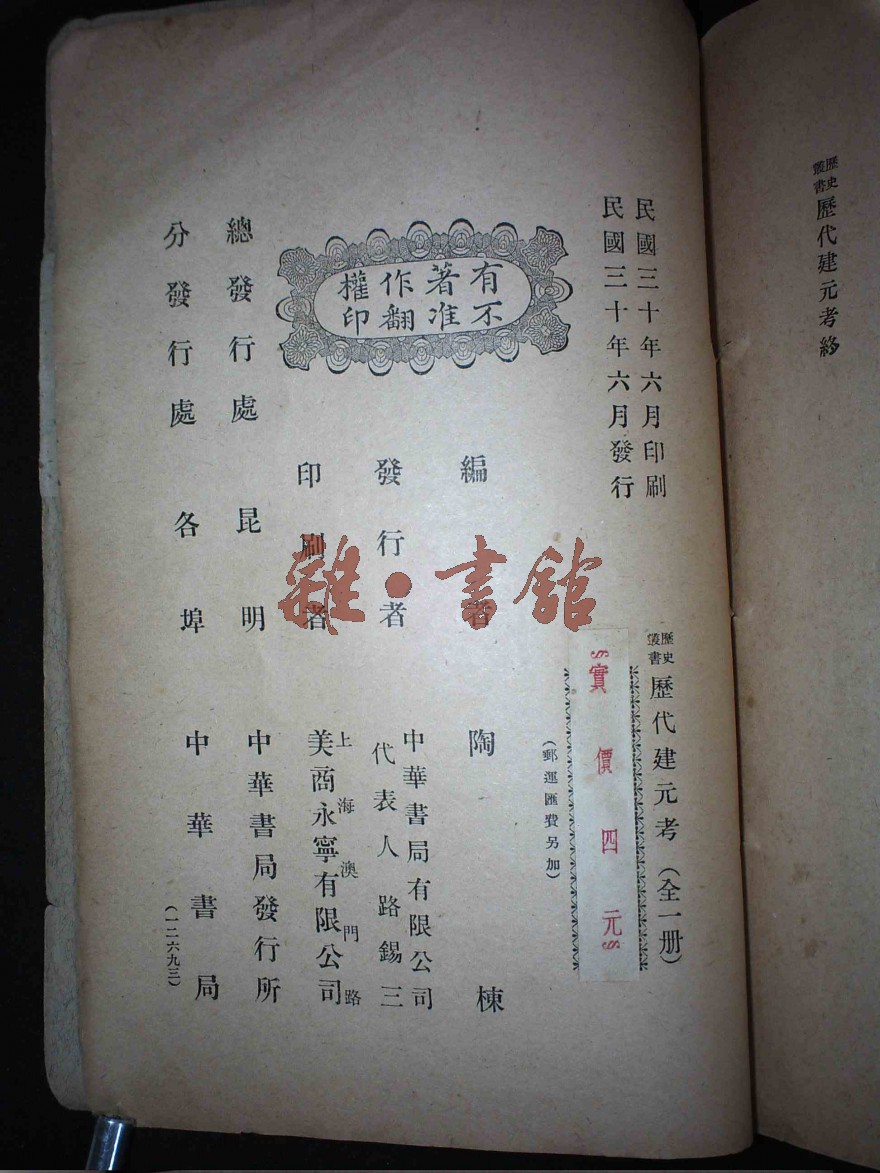 歷史叢書 歷代建元考終
民國三十年六月印刷
民國三十年六月發行
歷史叢書 歷代建元考（全一册）
實價四元
（郵運匯費另加）
有著作權
不准翻印
編者 陶棟
發行者 中華書局有限公司
代表人路錫三
印刷者 上海澳門路
美商永寧有限公司
總發行處 昆明 中華書局發行所
分發行處 各埠 中華書局
（一二六九三）
雜·書館